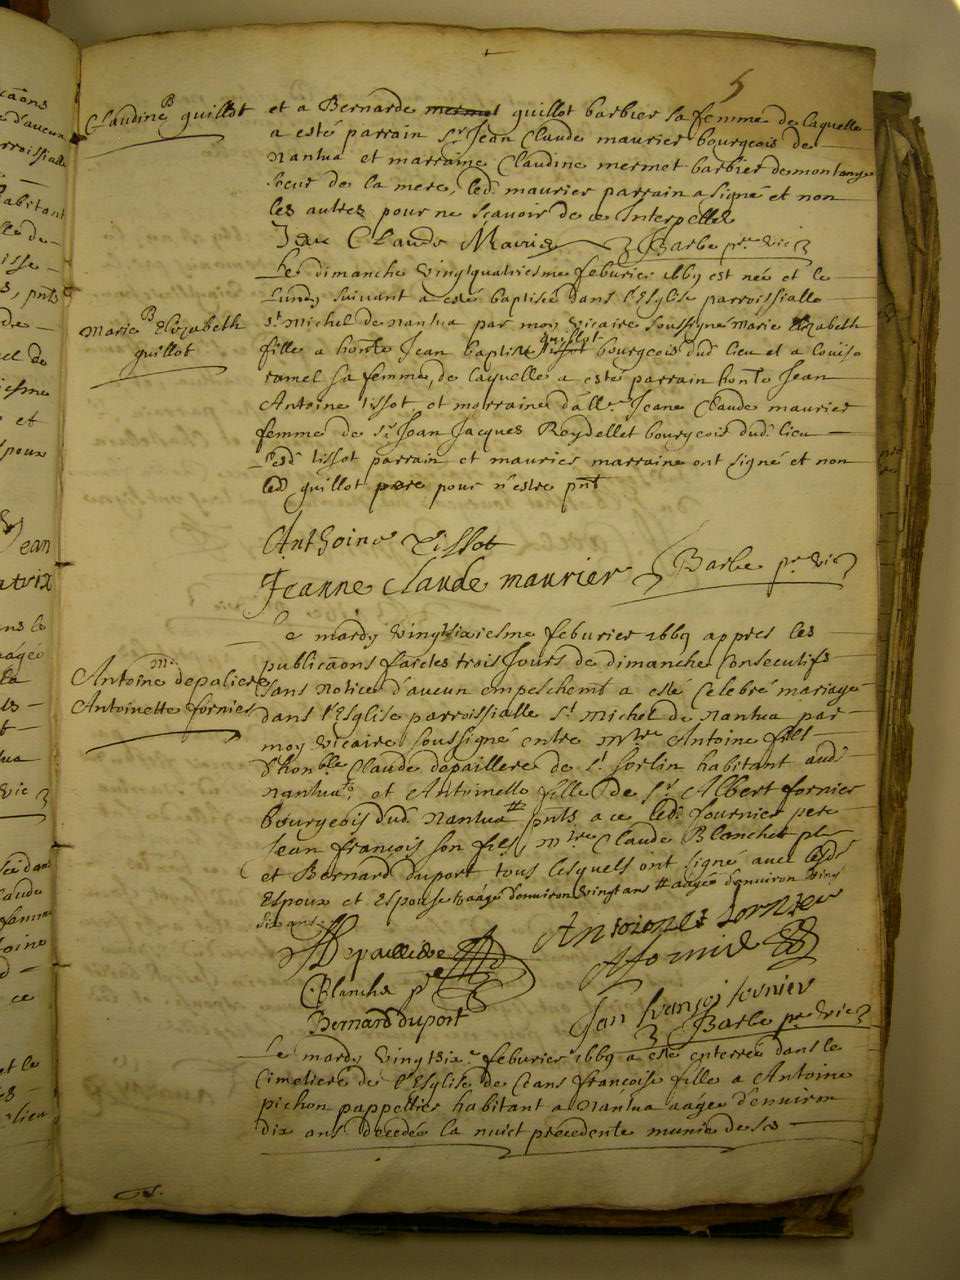 5
B
Claudine guillot
et a Bernarde guillot barbier sa femme de laquelle
a esté parrain Sr Jean Claude maurier bourgeois de
nantua et marraine Claudine mermet barbier de montange
soeur de la mere, led. maurier parrain a signé et non
les autres pour ne scavoir de ce Interpellez
Jean Claude Barbe ptre vic
Le dimanche vingtquatriesme feburier 1669 est née et le
Lundy suivant a esté baptisée dans l'Esglise parroissialle
B
Marie Elizabeth
guillot
st Michel de nantua par moy vicaire soussigné Marie Elizabeth
fille a honble Jean baptiste guillot bourgeois dud. lieu et a Louise
ramel sa femme, de laquelle a esté parrain honble Jean
Antoine tissot et marraine dalle Jeane Claude maurier
femme de Sr Jean Jacques Reydellet bourgeois dud. lieu
Lesd. tissot parrain et maurier marraine ont signé et non
led. guillot pere pour n'estre pnt
Anthoine Tissot
Jeanne Claude maurier Barbe ptre vic
Le mardy vingtsixiesme feburier 1669 appres les
publicaons faictes trois Jours de dimanche consecutifs
m.
Antoine depaliere
Antoinette fornier
sans notice d'aucun empeschemt a esté Celebré mariage
dans l'Esglise parroissialle St Michel de nantua par
moy vicaire soussigné entre mtre Antoine fills
d'honble Claude depaillere de St sorlin habitant aud.
nantua, et Antoinette fille de Sr Albert fornier
bourgeois dud. nantua # pnts a ce led. fournier pere
Jean françois son fils, mtre Claude Blanchet ptre
et Bernard duport tous lesquels ont signé avec lesd.
Espoux et Espouse aagé d'environ vingt ans # aagée d'environ vingt
six ans
Depailliere Antoinete Fornier
AFornier
Blanchet ptre
Bernard duport Jan françoi fornier
Barbe ptre vic
Le mardy vingtsixe feburier 1669 a esté enterrée dans le
Cimetiere de l'Esglise de ceans françoise fille a Antoine
pichon pappetier habitant a Nantua aagée d'environ
dix ans decedée la nuict precedente munie de ses